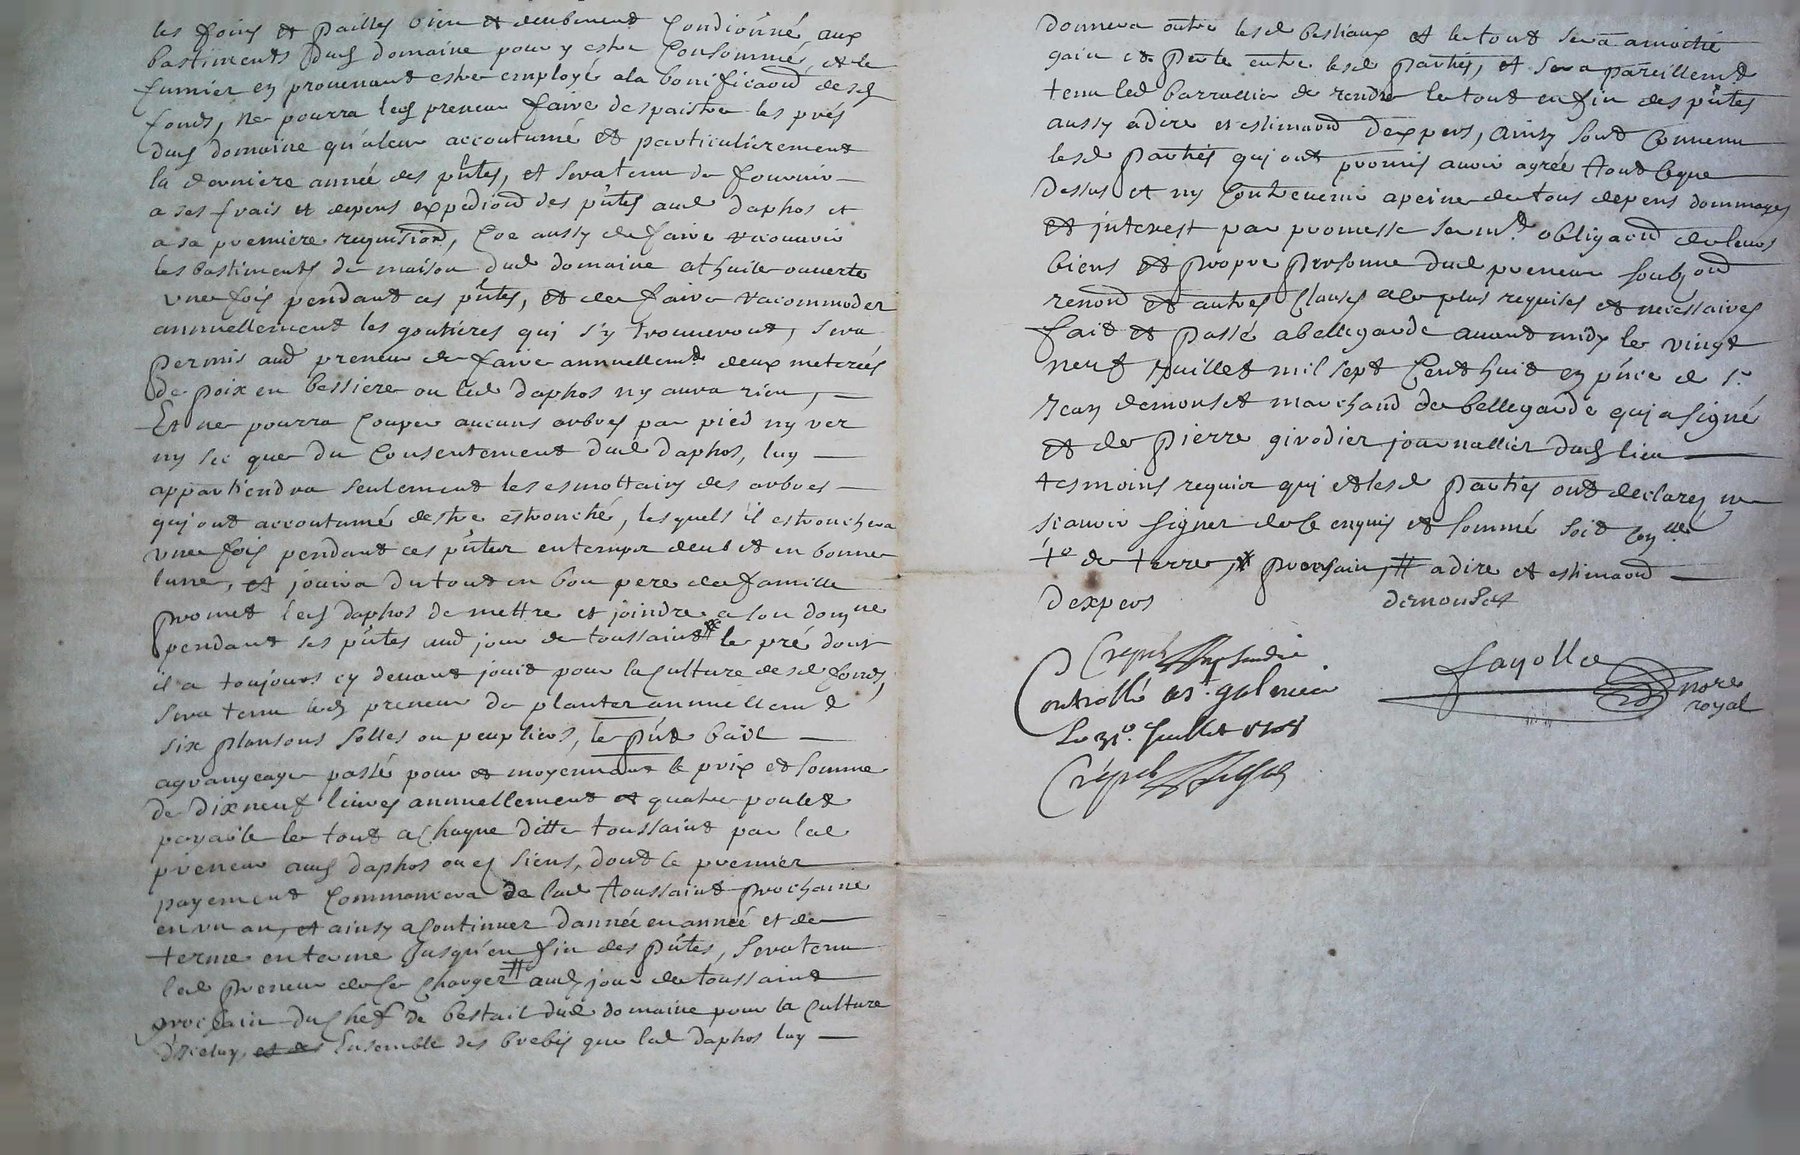 les foins et pailles bien et deubement Condionné, aux
bastiments dud domaine pour y estre Consommé, et le
fumier en provenant estre employé a la bonificaôn desd
fonds, ne pourra led preneur faire despaistre les prés
dud domaine qu'aleur accoutumé et particulierement
la derniere année des pûtes, et sera tenu de fournir
a ses frais et depens expediôn des pûtes aud daphos et
a sa premiere requisiôn, Coe aussy de faire recouvrir
les bastiments de maison dud domaine a thuile ouverte
une fois pendant ces pûtes, et de faire racommoder
annuellement les goutieres qui s'y trouveront, sera
permis aud preneur de faire annuellemt deux meterées
de poix en bessiere ou led daphos ny aura rien,
Et ne pourra Couper aucuns arbres par pied ny ver
ny sec que du Consentement dud daphos, luy
appartiendra seulement les esmottains des arbres
qui ont accoutumé destre estronché, lesquels il estronchera
une fois pendant ces pûtes en temps deub et en bonne
lune, et jouira du tout en bon pere de famille
promet led daphos de mettre et joindre a son domne
pendant ses pûtes aud jour de toussaint # le pré dont
il a toujours cy devant jouit pour la Culture desd fonds,
sera tenu led preneur de planter annuellemt
six plansons solles ou peupliers, le pût bail
agrangeage passé pour et moyennant le prix et somme
de dixneuf livres annuellement et quatre poulet
payable le tout a Chaque ditte toussaint par led
preneur aud daphos ou es siens, dont le premier
payement Commancera de lad toussaint prochaine
en un an, et ainsy a Continuer dannée en année et de
terme en terme jusqu'en fin des pûtes, sera tenu
led preneur de se Charger # aud jour de toussaint
prochain du Chef de bestail dud domaine pour la Culture
d'iceluy et des Ensemble des brebis que led daphos luy
donnera outre lesd bestiaux et le tout sera a moitié
gain et perte entre lesd parties, et sera pareillemt
tenu led barrallier de rendre le tout en fin des pûtes
aussy adire et estimaôn dexpers, ainsy sont Convenu
lesd parties qui ont promis avoir agréé tout Ceque
dessus et ny Contrevenir a peine de tous depens dommages
et interest par promesse sermt obligaôn de leurs
biens et propre personne dud preneur soubzôn
renonôn et autres Clauses a le plus requises et necessaires
fait et passé a bellegarde avant midy le vingt
neuf juillet mil sept Cent huit en pûce de sr
Jean demonset marchand de bellegarde qui a signé
et de pierre givodier journallier dud lieu
tesmoins requis qui et lesd parties ont declarez ne
scavoir signer de Ce enquis et sommé soit
de terre, # prochain, # adire et estimaôn
dexpers
demonset
Controllé a st galmier
Le 31e Juillet 1708
fayolle
nore
royal